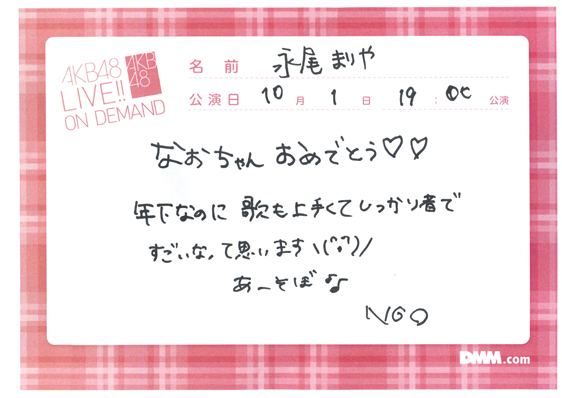 AKB48
LIVE!!
ON DEMAND
AKB
48
名前 永尾まりや
公演日 10月1日 19:00公演
なおちゃん おめでとう♡♡
年下なのに 歌も上手くてしっかり者で
すごいなって思いますヽ(^o^)/
あーそぼ♪
NGO
DMM.com